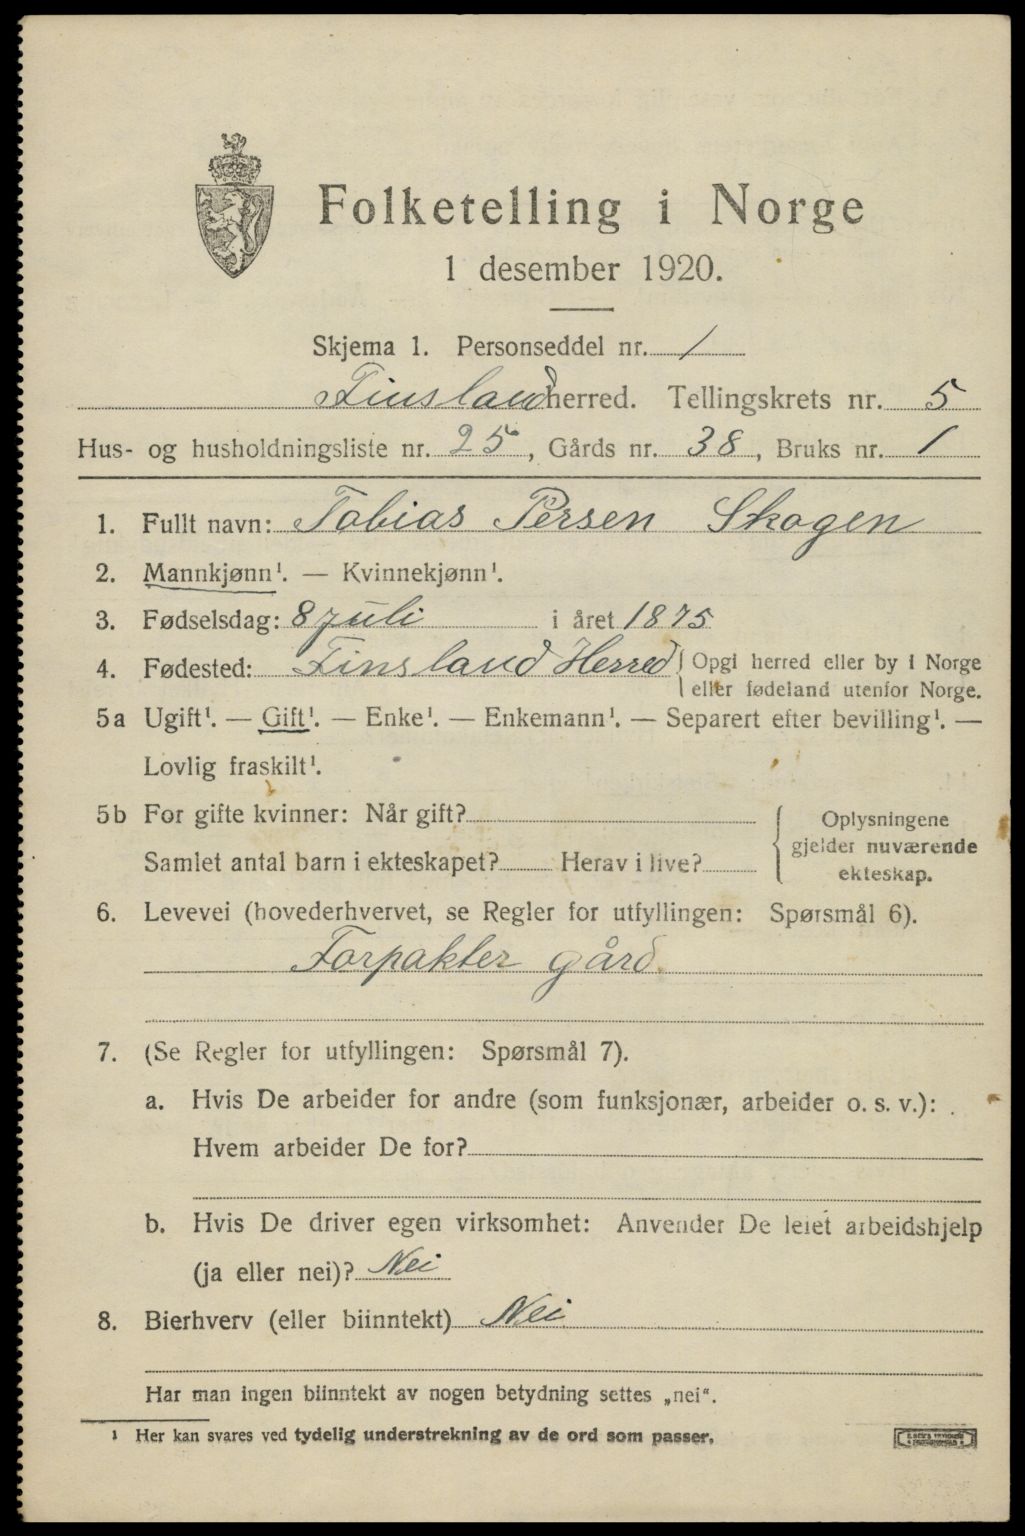 Folketelling i Norge
1 desember 1920.
Skjema 1. Personseddel nr. 1
Finsland herred. Tellingskrets nr. 5
Hus- og husholdningsliste nr. 25, Gårds nr. 38, Bruks nr. 1
1. Fullt navn: Tobias Persen Skogen
2. Mannkjønn¹. — Kvinnekjønn¹.
3. Fødselsdag: 8 juli i året 1875
4. Fødested: Finsland Herred { Opgi herred eller by i Norge
eller fødeland utenfor Norge.
5a Ugift¹. — Gift¹. — Enke¹. — Enkemann¹. — Separert efter bevilling¹. —
Lovlig fraskilt¹.
5b For gifte kvinner: Når gift?
Samlet antal barn i ekteskapet? Herav i live?
{ Oplysningene
gjelder nuværende
ekteskap.
6. Levevei (hovederhvervet, se Regler for utfyllingen: Spørsmål 6).
Forpakter gård
7. (Se Regler for utfyllingen: Spørsmål 7).
a. Hvis De arbeider for andre (som funksjonær, arbeider o. s. v.):
Hvem arbeider De for?
b. Hvis De driver egen virksomhet: Anvender De leiet arbeidshjelp
(ja eller nei)? Nei
8. Bierhverv (eller biinntekt) Nei
Har man ingen biinntekt av nogen betydning settes „nei“.
¹ Her kan svares ved tydelig understrekning av de ord som passer.